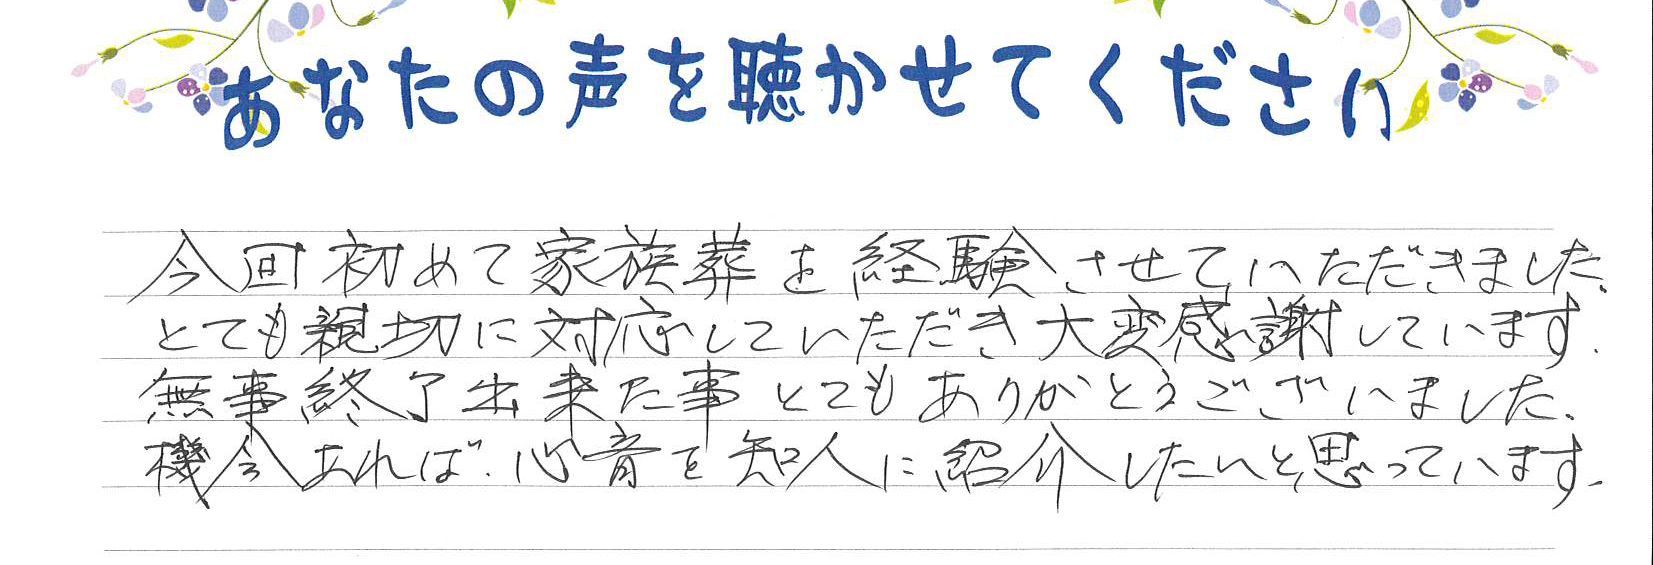 あなたの声を聴かせてください
今回初めて家族葬を経験させていただきました。
とても親切に対応していただき大変感謝しています。
無事終了出来た事とてもありがとうございました。
機会あれば、心音を知人に紹介したいと思っています。